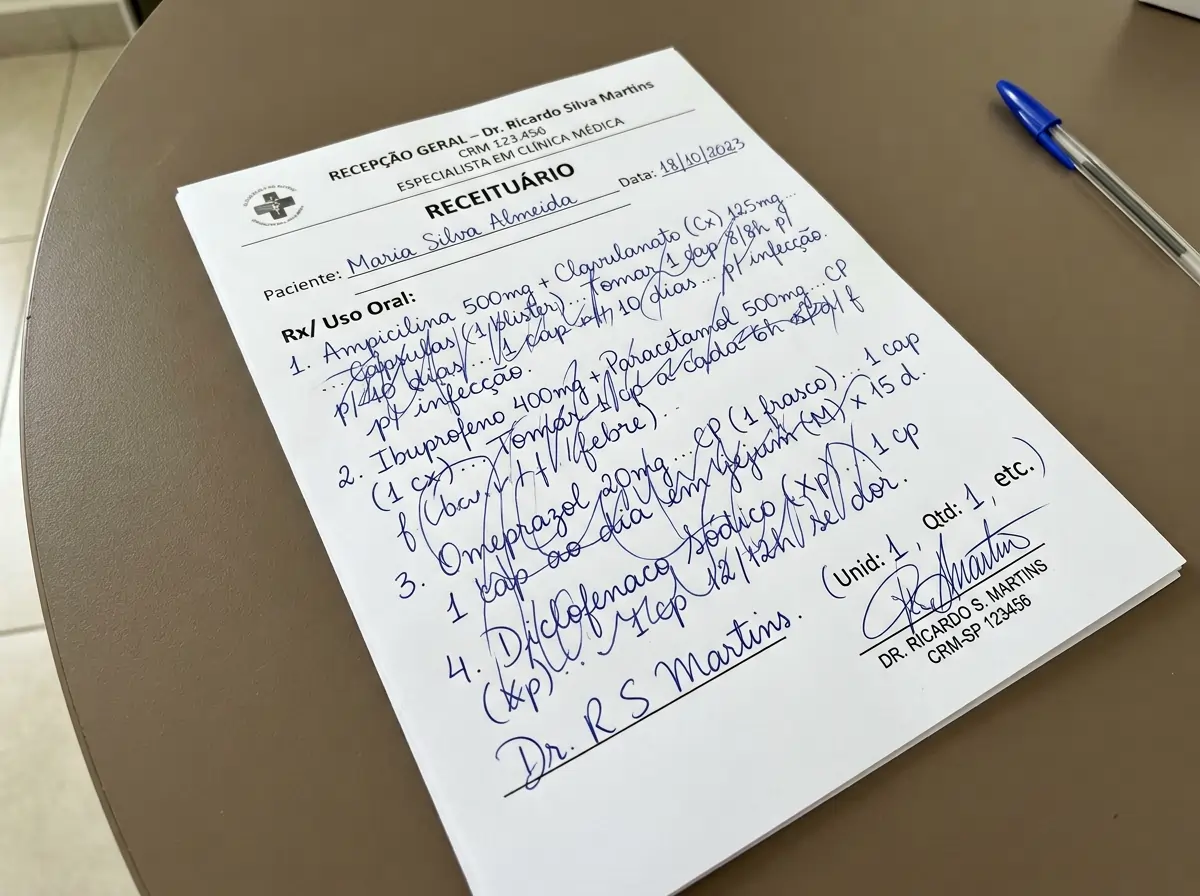 RECEPÇÃO GERAL – Dr. Ricardo Silva Martins
CRM 123.456
ESPECIALISTA EM CLÍNICA MÉDICA
RECEITUÁRIO
Data: 18/10/2023
Paciente: Maria Silva Almeida
Rx/ Uso Oral:
1. Ampicilina 500mg + Clavulanato (Cx) 125mg...
... Cápsulas (1 blister)... Tomar 1 cap 8/8h p/
dias... 1 cap 10 dias... p/ infecção.
p/ infecção.
2. Ibuprofeno 400mg + Paracetamol 500mg... CP
(1 cx)... Tomar 1 cp a cada 6h
febre)...
3. Omeprazol 20mg... CP (1 frasco)... 1 cap
1 cap ao dia em jejum (M) x 15 d.
4. Diclofenaco Sódico (xp)... 1 cp
(xp)... 1 cp 12/12h se dor.
(Unid: 1, Qtd: 1, etc.)
Dr. R S Martins.
DR. RICARDO S. MARTINS
CRM-SP 123456